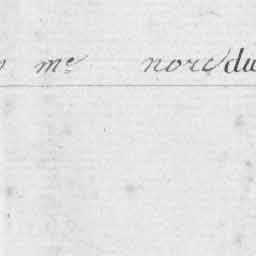 me nord du